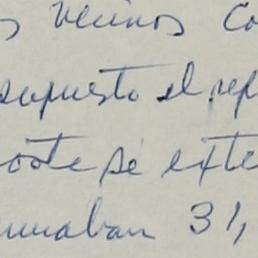 s vecinos Co
supuesto el rep
oote se exte
umaban 31,